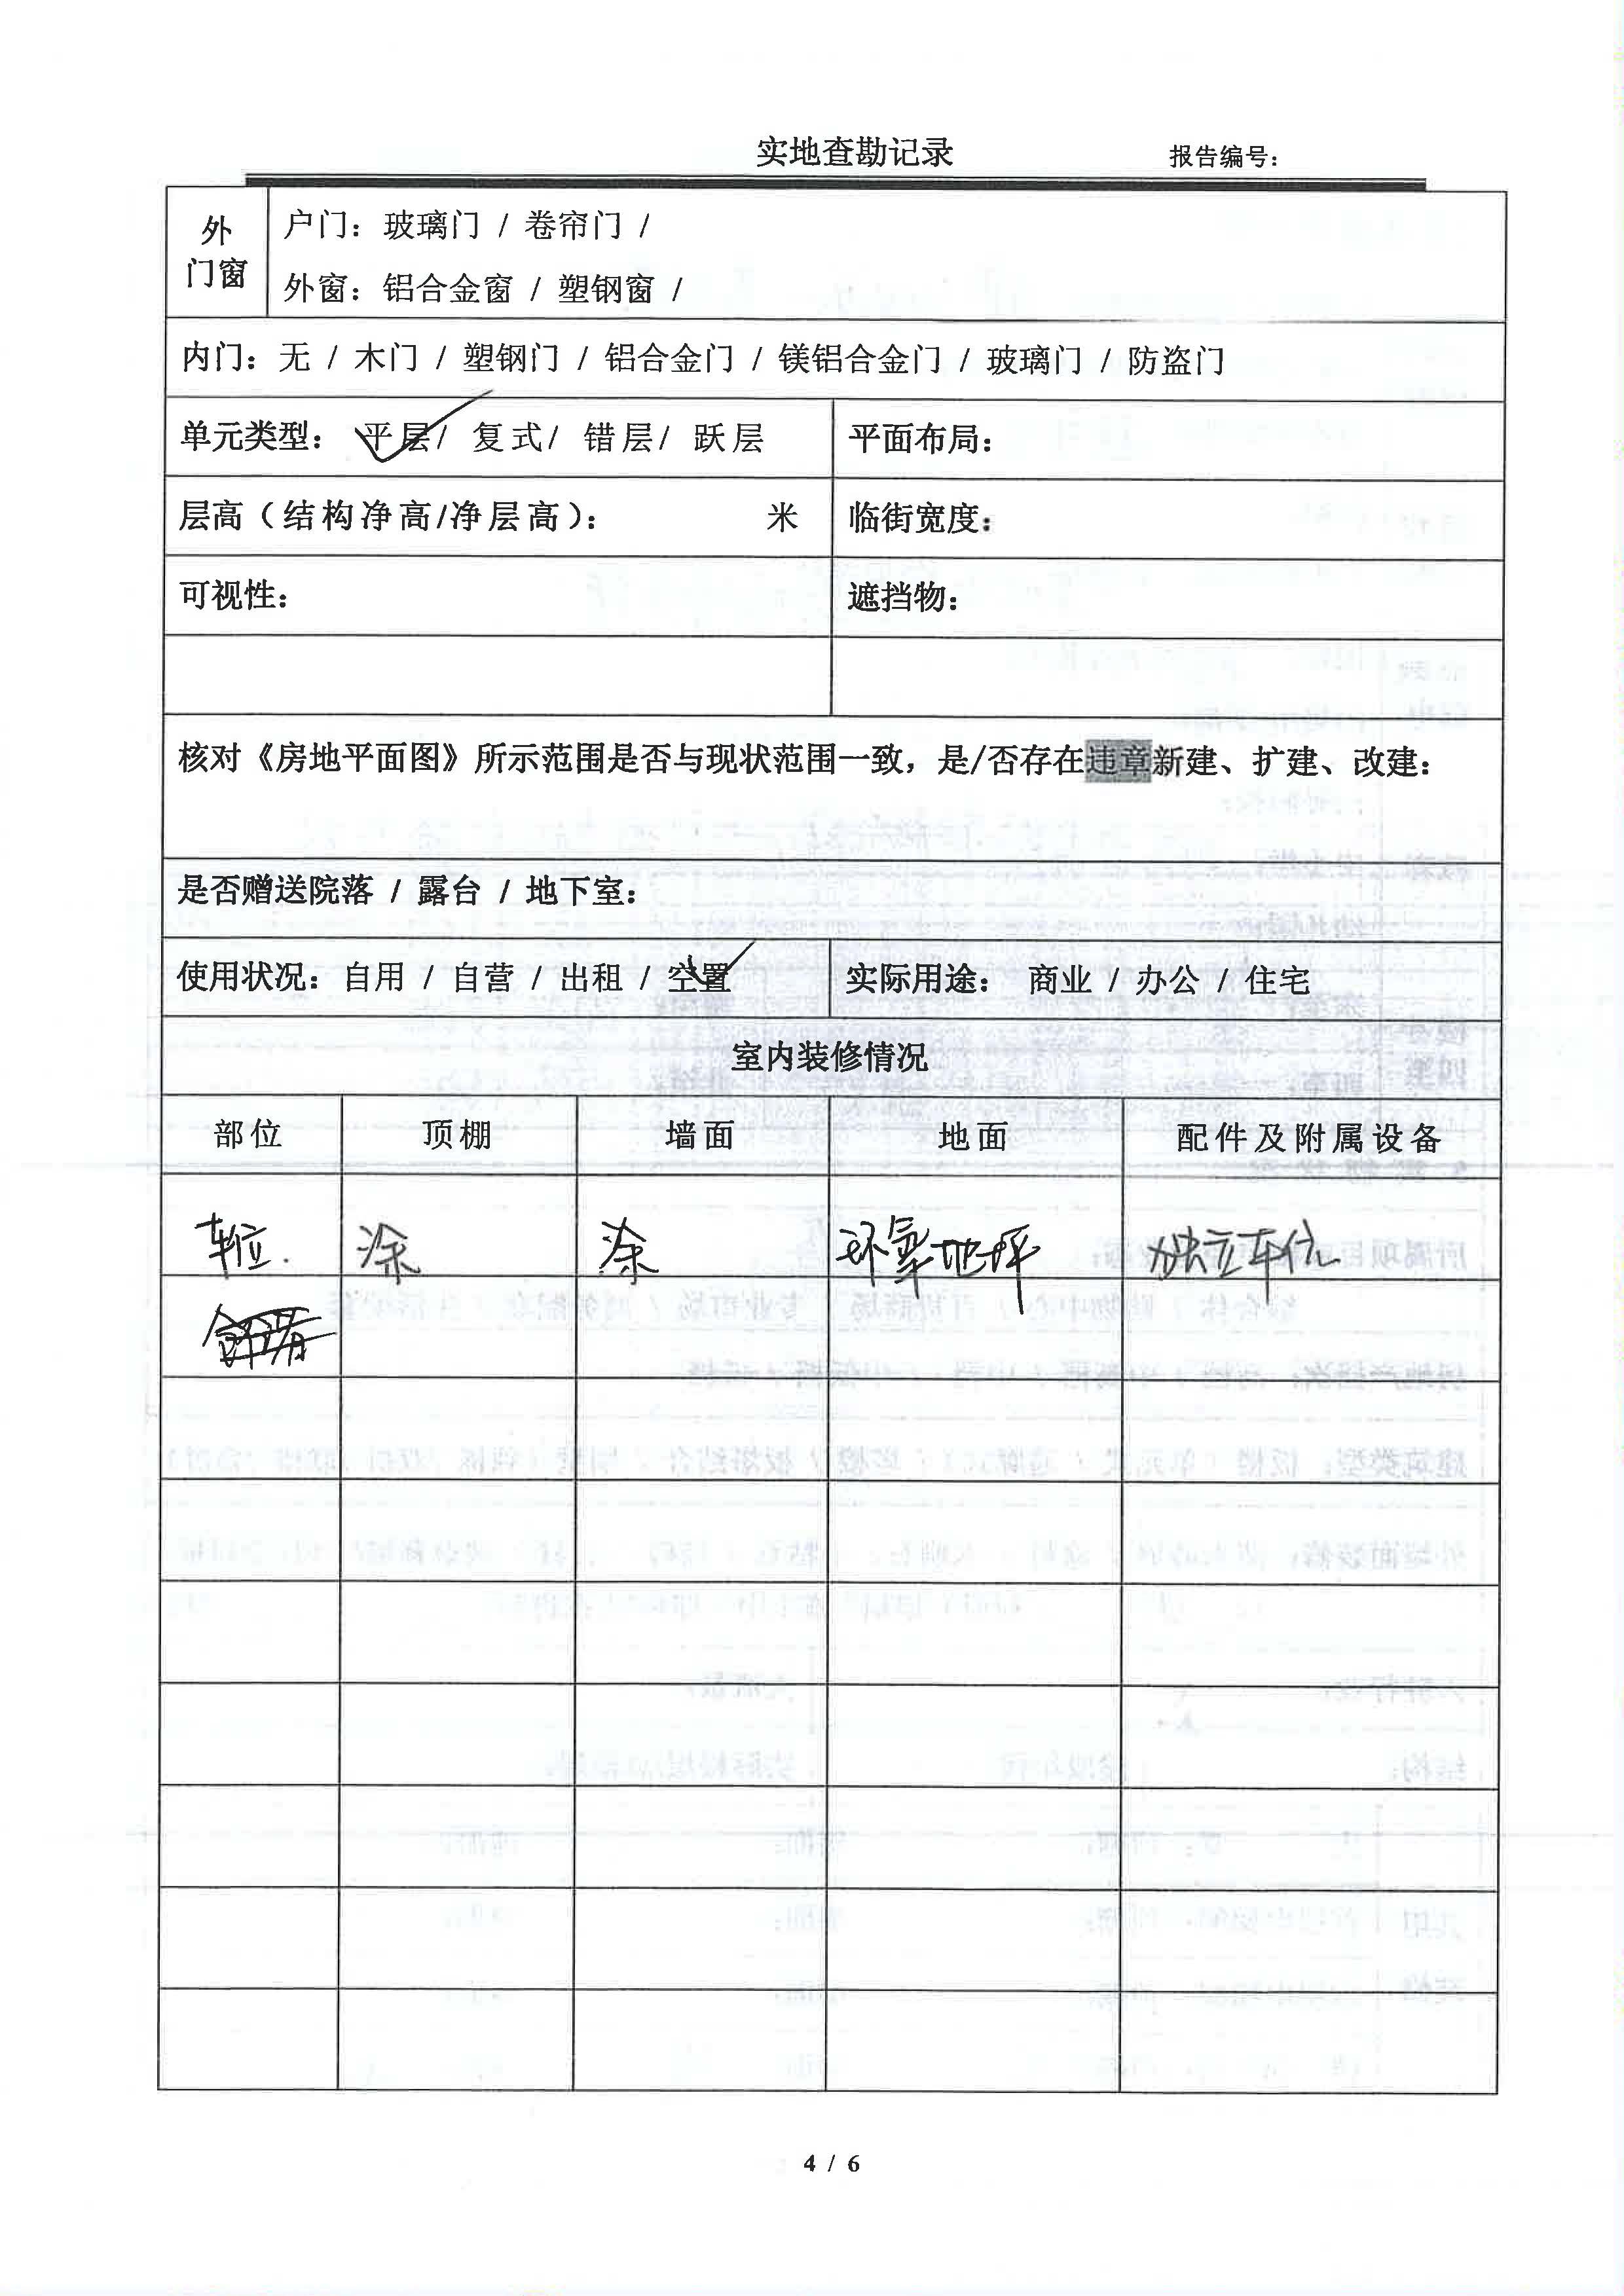 实地查勘记录 报告编号：
外门窗
户门：玻璃门 / 卷帘门 /
外窗：铝合金窗 / 塑钢窗 /
内门：无 / 木门 / 塑钢门 / 铝合金门 / 镁铝合金门 / 玻璃门 / 防盗门
单元类型：平层/ 复式/ 错层/ 跃层 平面布局：
层高（结构净高/净层高）： 米 临街宽度：
可视性： 遮挡物：
核对《房地平面图》所示范围是否与现状范围一致，是/否存在违章新建、扩建、改建：
是否赠送院落 / 露台 / 地下室：
使用状况：自用 / 自营 / 出租 / 空置 实际用途： 商业 / 办公 / 住宅
室内装修情况
部位 顶棚 墙面 地面 配件及附属设备
车位. 涂 涂 环氧地坪 独立车位
4 / 6